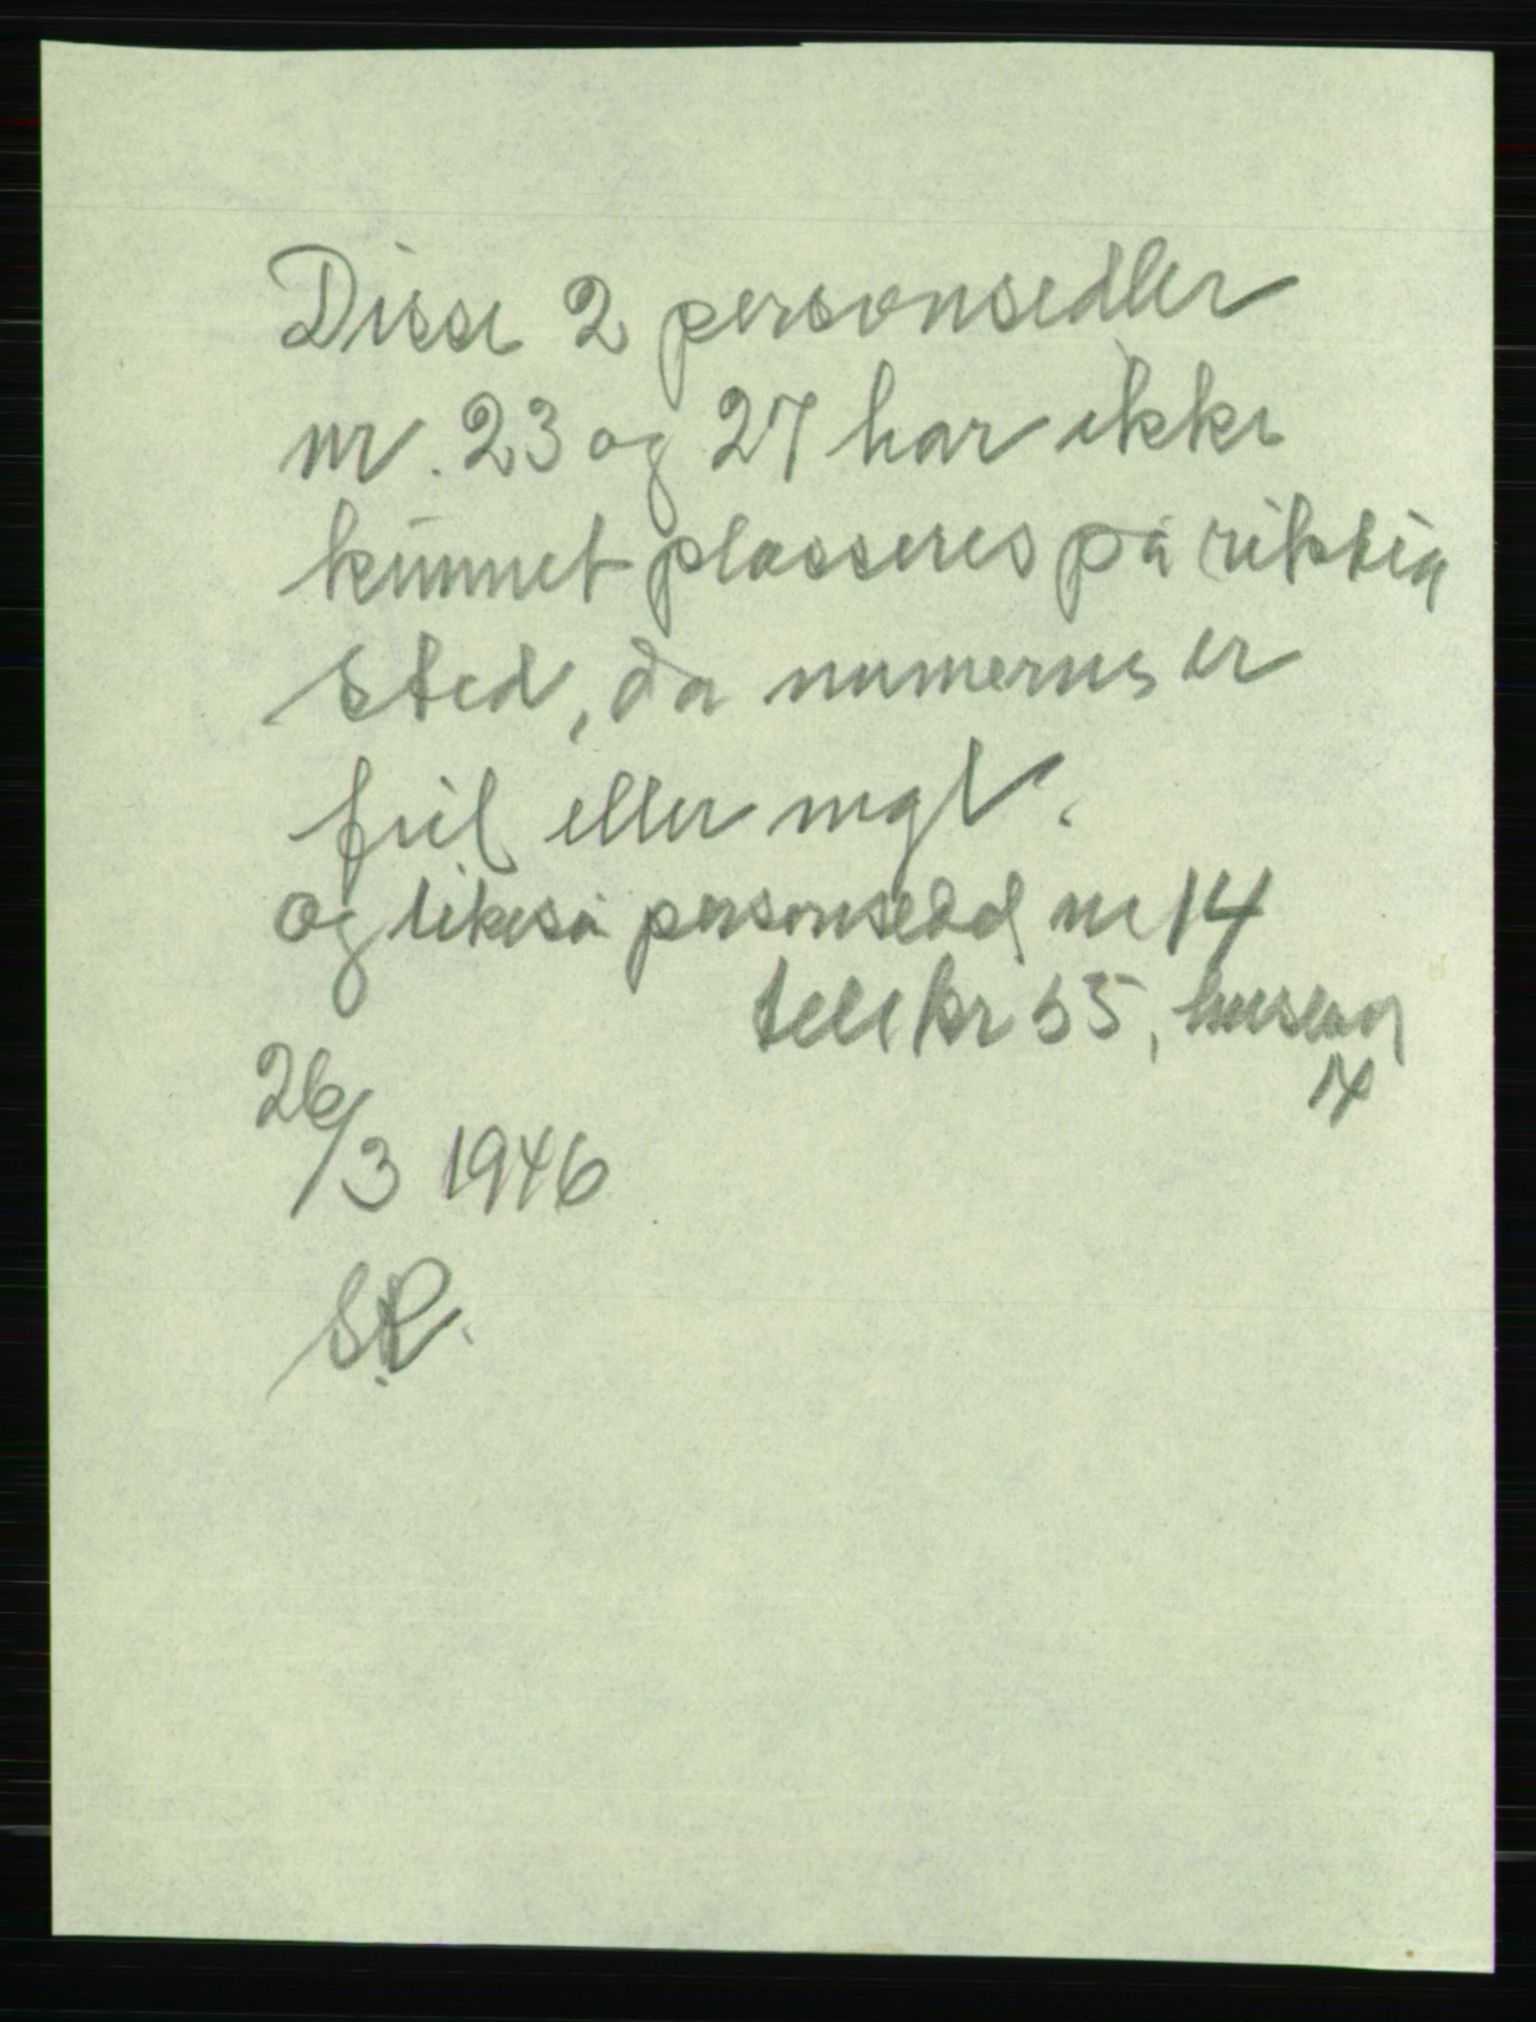 Disse 2 personsedler
nr. 23 og 27 har ikke
kunnet plasseres på riktig
sted, da numerne er
feil eller mgl.
og likeså personsedd nr 14
tellkr 55, husliste
14
26/3 1946
S.P.